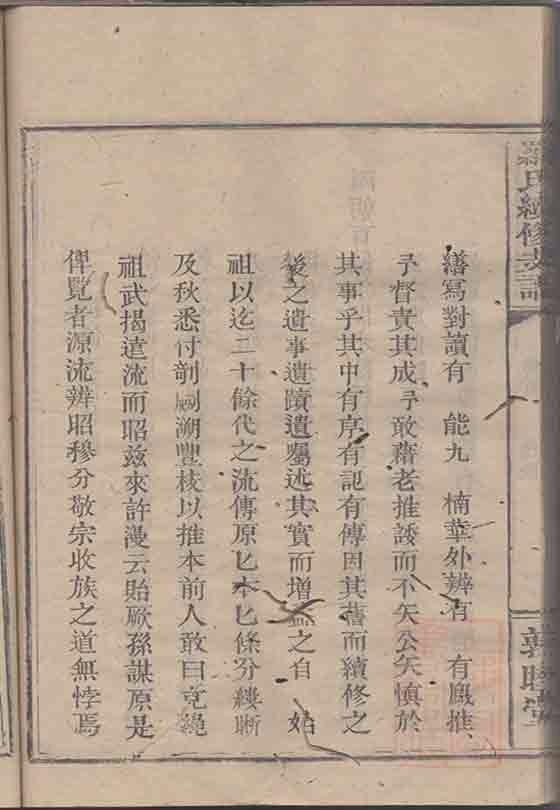 羅氏續修支譜
繕寫對讀有 能九 楠華外辨有 有廄推
予督責其成予敢藉老推諉而不矢公矢慎於
其事乎其中有序有記有傳因其舊而續修之
後之遺事遺蹟遺囑述其實而增益之自 始
祖以迄二十餘代之流傳原匕本匕條分縷晰
及秋悉付剞劂溯豐枝以推本前人敢曰克繩
祖武揭遠流而昭兹來許漫云貽厥孫謀原是
俾覽者源流辨昭穆分敬宗收族之道無悖焉